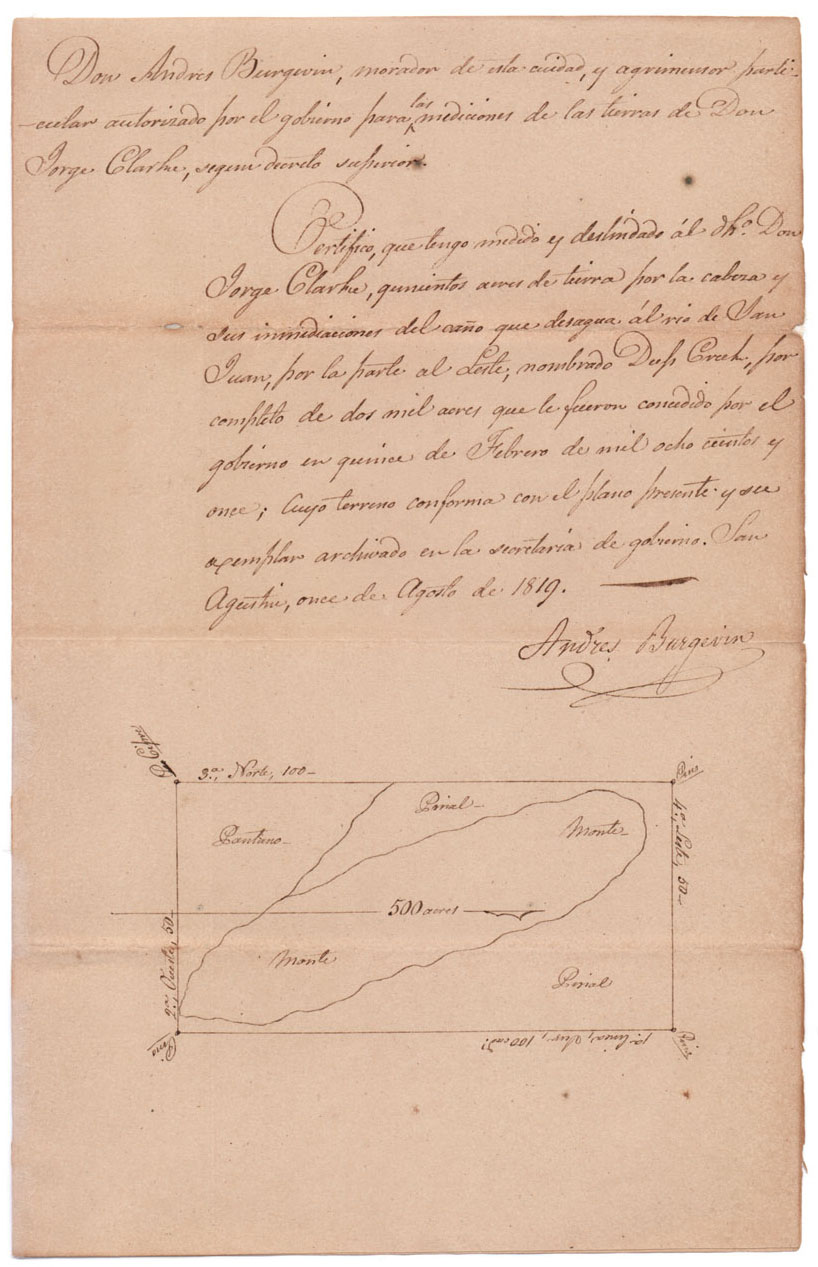 Don Andres Burgevin, morador de esta cuidad, y agrimensor parti-
-cular autorizado por el gobierno para las mediciones de las tierras de Don
Jorge Clarke, segun decreto superior.
Certifico, que tengo medido y deslindado ál dho. Don
Jorge Clarke, quinientos acres de tierra por la cabeza y
sus inmediaciones del caño que desagua ál rio de San
Juan, por la parte al Leste, nombrado Deep Creek, por
completo de dos mil acres que le fueron concedido por el
gobierno en quince de Febrero de mil ocho cientos y
once; Cuyo terreno conforma con el plano presente y su
exemplar archivado en la secretaría de gobierno. San
Agustin, once de Agosto de 1819.
Andres Burgevin
Cipres
3.a, Norte, 100-
Pino
Pinal-
Pantano-
Monte
4.a, Leste, 50-
500 acres
2.a, Oueste, 50-
Monte
Pinal
Pino
1.a linea, Sur, 100 cad.
Pino